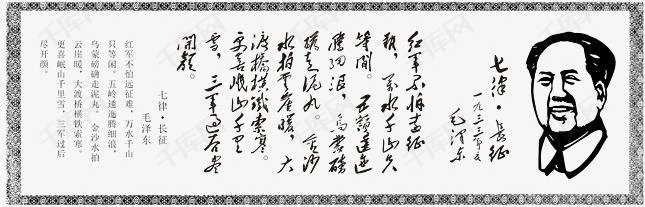 七律·長征
毛泽东
紅軍不怕远征
難，万水千山只
等闲。五嶺逶迤
腾细浪，烏蒙磅
礴走泥丸。金沙
水拍雲崖暖，大
渡橋横鐵索寒。
更喜岷山千里
雪，三軍过后尽
開顔。
七律·长征
毛泽东
红军不怕远征难，万水千山
只等闲。五岭逶迤腾细浪，
乌蒙磅礴走泥丸。金沙水拍
云崖暖，大渡桥横铁索寒。
更喜岷山千里雪，三军过后
尽开颜。
千库网